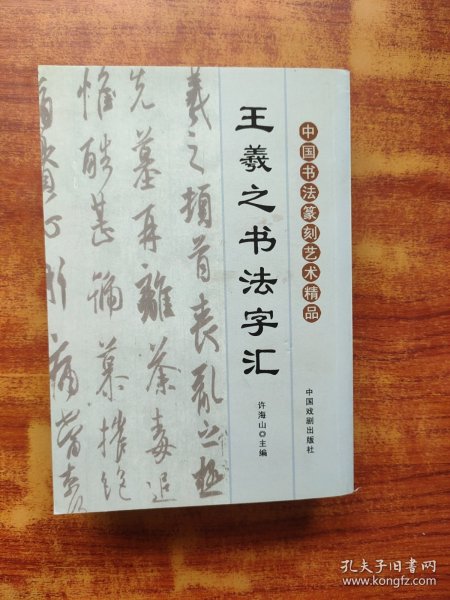 中国书法篆刻艺术精品
中国戏剧出版社
王羲之书法字汇
许海山◎主编
羲之頓首喪亂之極
先墓再離荼毒追
惟酷甚號慕摧絕
孔夫子旧书网
www.kongfz.com